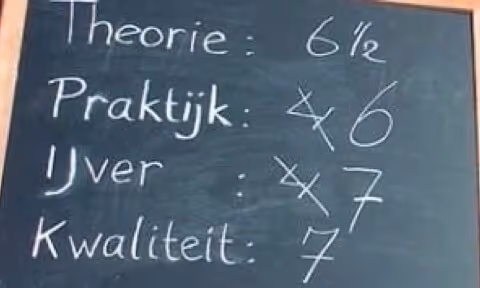 Theorie: 6½
Praktijk: 6
IJver : 7
Kwaliteit: 7